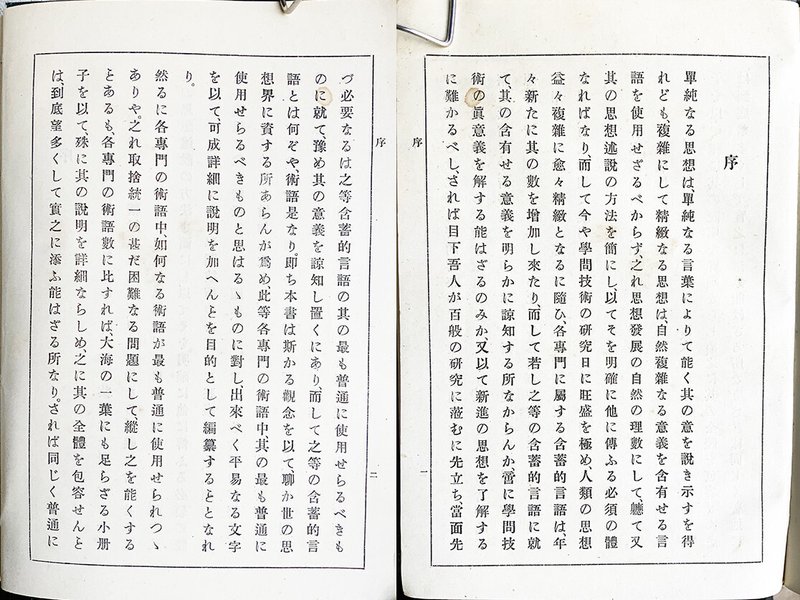 序
單純なる思想は、單純なる言葉によりて能く其の意を説き示すを得
れども、複雜にして精緻なる思想は、自然複雜なる意義を含有せる言
語を使用せざるべからず、之れ思想發展の自然の理數にして、軈て又
其の思想述説の方法を簡にし、以てそを明確に他に傳ふる必須の體
なればなり、而して今や學問技術の研究日に旺盛を極め、人類の思想
益々複雜に愈々精緻となるに隨ひ、各專門に屬する含蓄的言語は、年
々新たに其の數を增加し來たり、而して若し之等の含蓄的言語に就
て其の含有せる意義を明らかに諒知する所なからんか、啻に學問技
術の眞意義を解する能はざるのみか、又以て新進の思想を了解する
に難かるべし、されば目下吾人が百般の研究に蒞むに先立ち、當面先
序
一
づ必要なるは之等含蓄的言語の其の最も普通に使用せらるべきも
のに就て、豫め其の意義を諒知し置くにあり、而して之等の含蓄的言
語とは何ぞや、術語是なり。即ち本書は斯かる觀念を以て、聊か世の思
想界に資する所あらんが爲め、此等各專門の術語中、其の最も普通に
使用せらるべきものと思はるゝものに對し、出來べく平易なる文字
を以て、可成詳細に説明を加へんとを目的として編纂するととなれ
り。
然るに各專門の術語中、如何なる術語が最も普通に使用せられつゝ
ありや。之れ取捨統一の甚だ困難なる問題にして、縱し之を能くする
とあるも、各專門の術語數に比すれば大海の一葉にも足らざる小册
子を以て、殊に其の説明を詳細ならしめ、之に其の全體を包容せんと
は、到底望多くして實之に添ふ能はざる所なり。されば同じく普通に
序
二